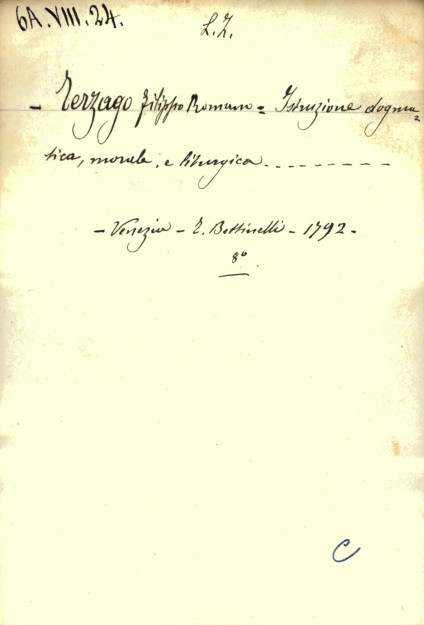 6A.VIII.24.
L.Z.
- Terzago Filippo Romano = Istruzione dogma=
tica, morale, e liturgica. - - - - - - - -
- Venezia - T. Bettinelli - 1792 -
8º
C